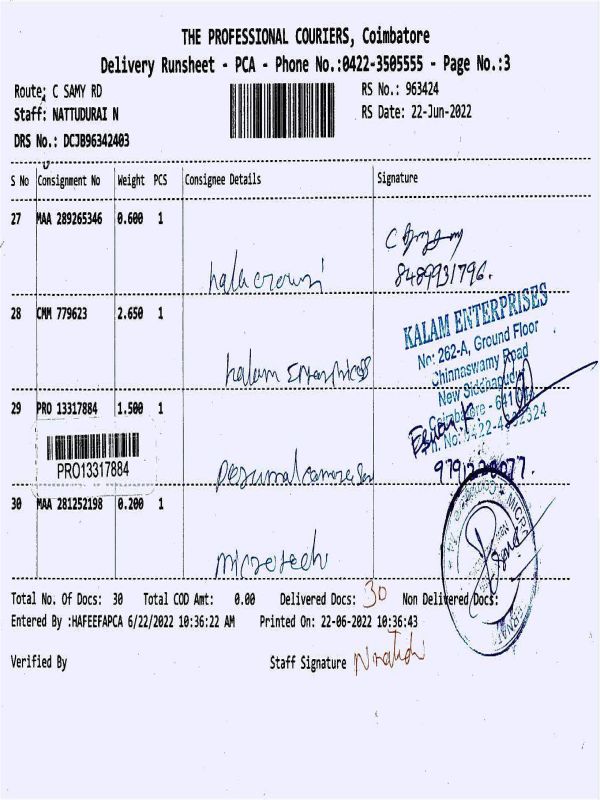 THE PROFESSIONAL COURIERS, Coimbatore
Delivery Runsheet - PCA - Phone No.:0422-3505555 - Page No.:3
Route: C SAMY RD
RS No.: 963424
Staff: NATTUDURAI N
RS Date: 22-Jun-2022
DRS No.: DCJB96342403
S No Consignment No Weight PCS Consignee Details Signature
27 MAA 289265346 0.600 1
8489931796.
28 CMM 779623 2.650 1
KALAM ENTERPRISES
No: 262-A, Ground Floor
Chinnaswamy Road
New Siddhapudur
Coimbatore - 641
kalam
29 PRO 13317884 1.500 1
PRO13317884
30 MAA 281252198 0.200 1
microtech
Total No. Of Docs: 30 Total COD Amt: 0.00 Delivered Docs: 30 Non Delivered Docs:
Entered By :HAFEEFAPCA 6/22/2022 10:36:22 AM Printed On: 22-06-2022 10:36:43
Verified By Staff Signature